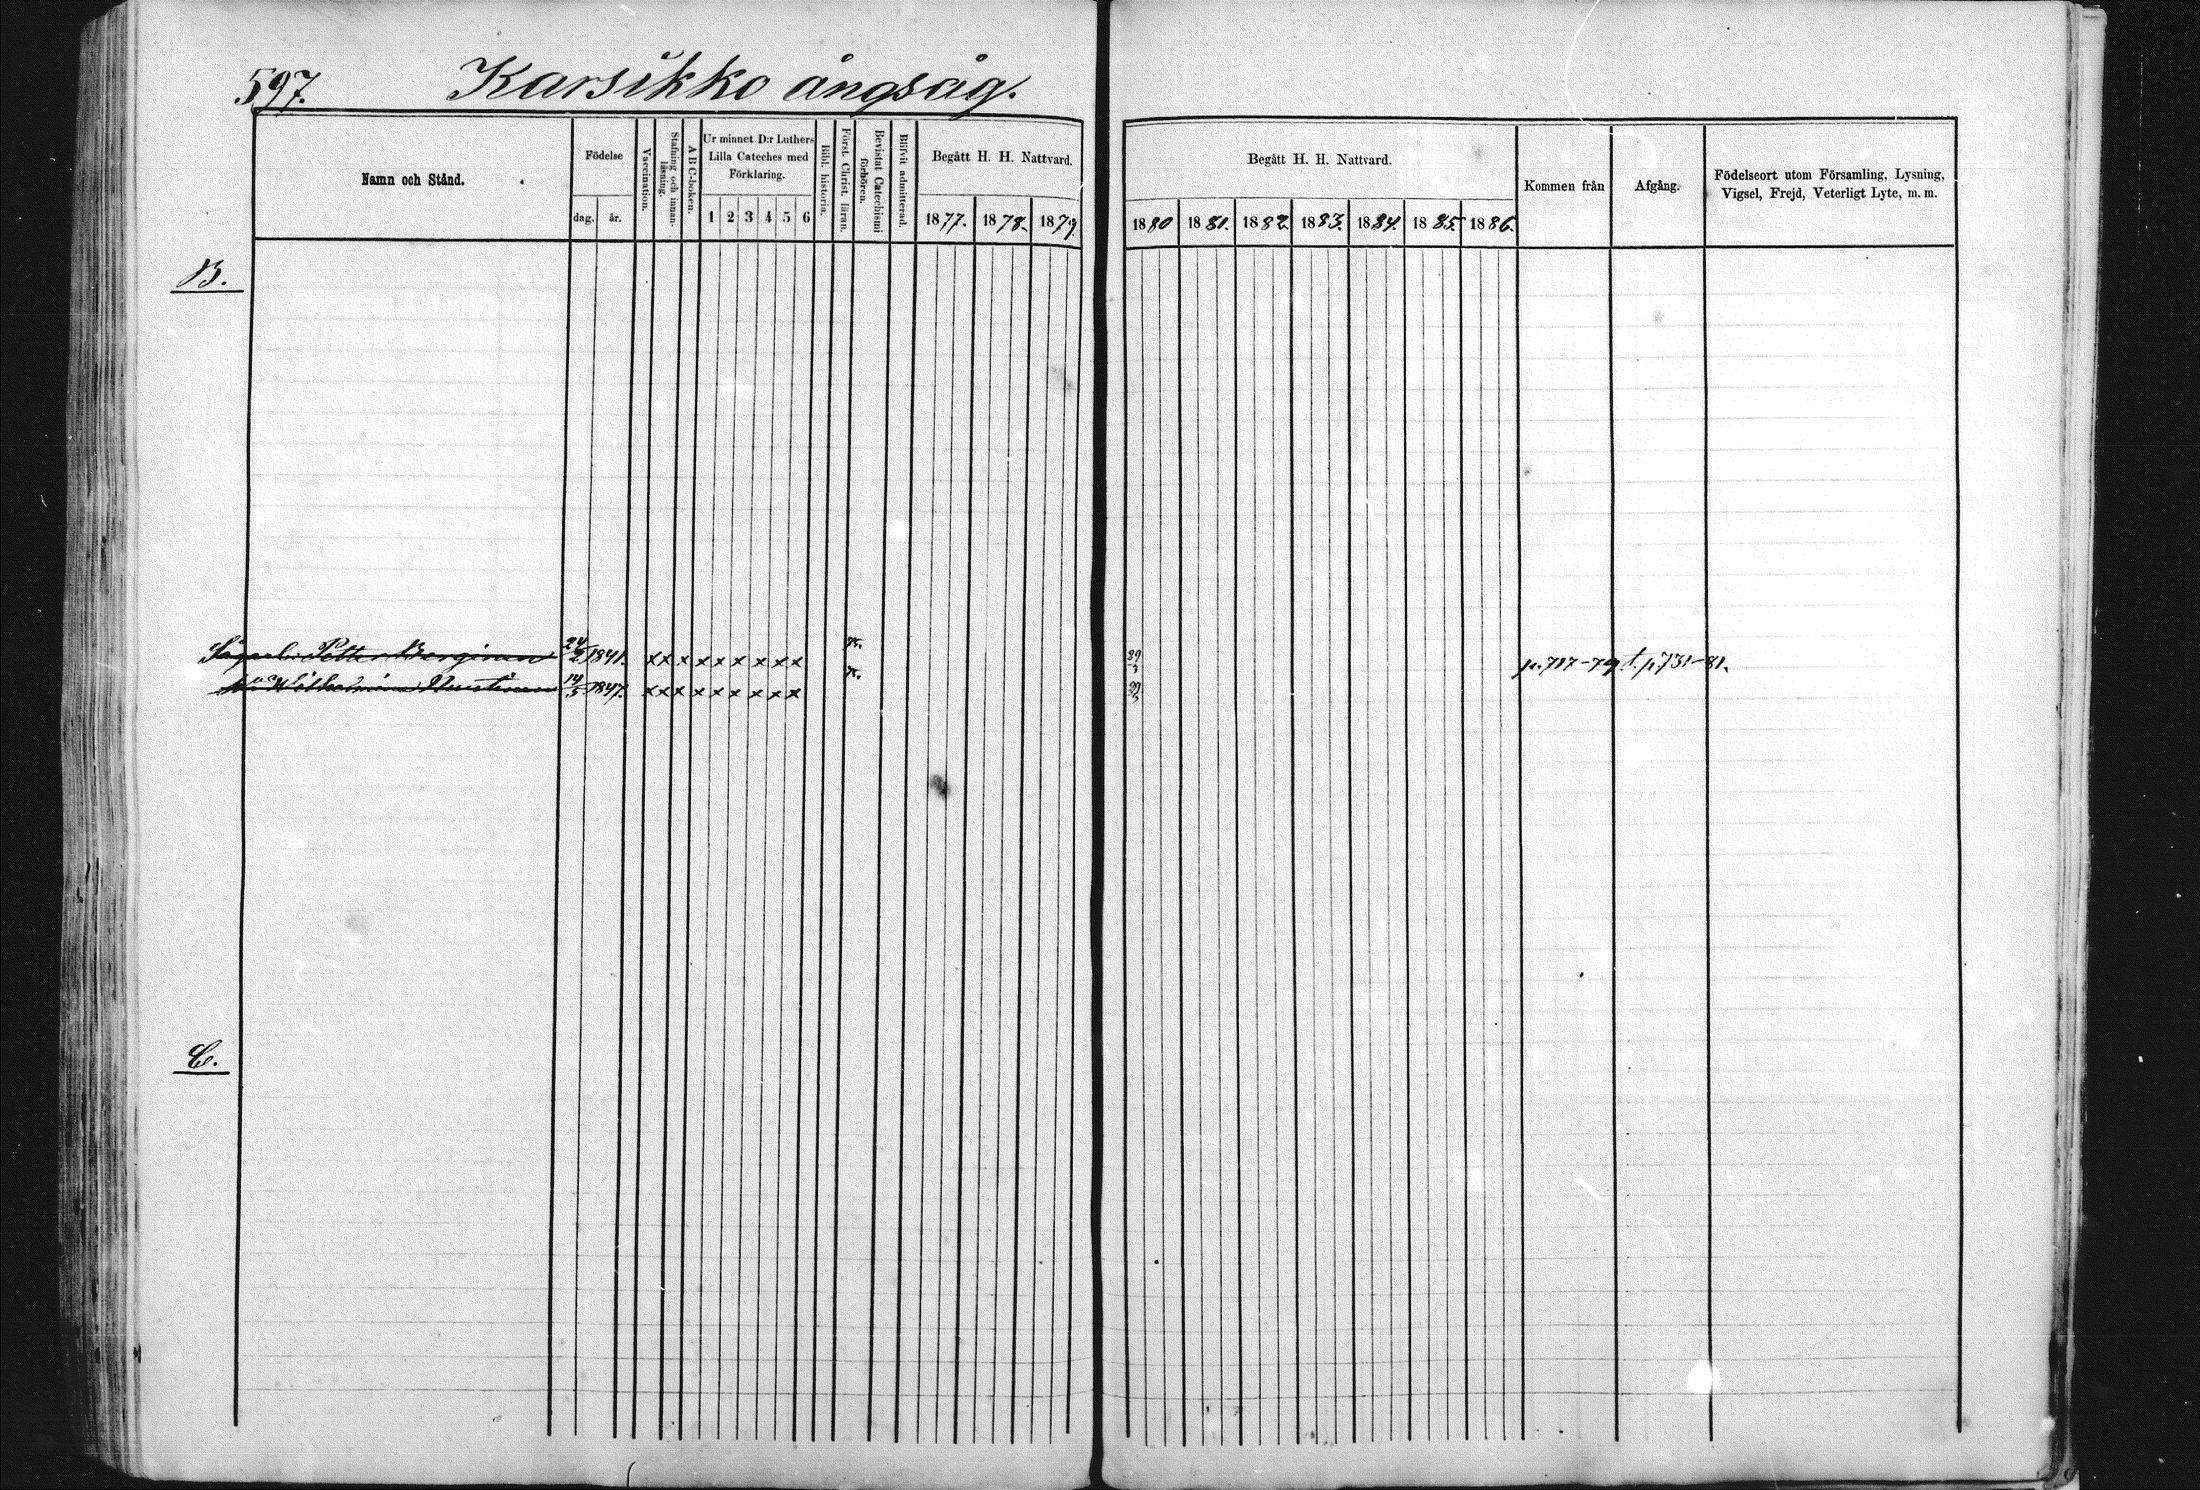 597. Karsikko ångsåg.
Namn och Stånd.
Födelse
dag. år.
Vaccination.
Stafning och innanläsning.
A B C-boken.
Ur minnet D:r Luthers
Lilla Cateches med
Förklaring.
1 2 3 4 5 6
Bibl. historia.
Först. Christ. läran.
Bevistat Catechismi förhören.
Blifvit admitterad.
Begått H. H. Nattvard.
1877. 1878. 1879.
Begått H. H. Nattvard.
1880 1881. 1882. 1883. 1884. 1885. 1886.
Kommen från
Afgång.
Födelseort utom Församling, Lysning,
Vigsel, Frejd, Veterligt Lyte, m. m.
B.
Petter 24/2 1841. x x x x x x x x x p. 717-79 t. p. 731-81.
Wilhelmina 14/5 1847. x x x x x x x x x
C.